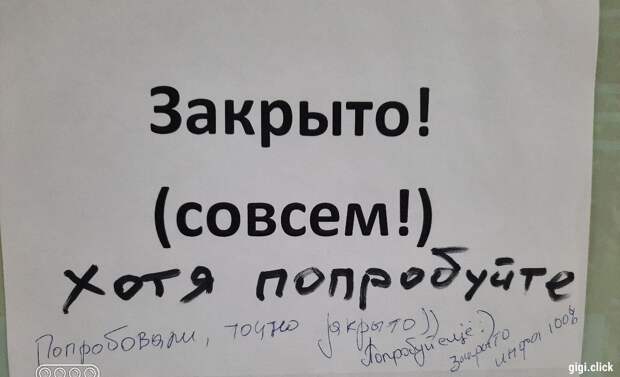 Закрыто!
(совсем!)
Хотя попробуйте
Попробовали, точно закрыто))
Попробуй еще :)
Закрыто
инфа 100%
gigi.click